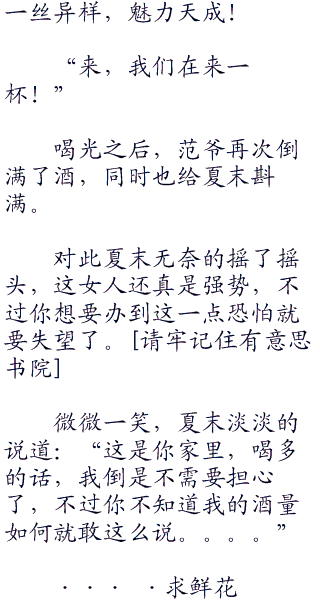 一丝异样，魅力天成！
“来，我们在来一
杯！”
喝光之后，范爷再次倒
满了酒，同时也给夏末斟
满。
对此夏末无奈的摇了摇
头，这女人还真是强势，不
过你想要办到这一点恐怕就
要失望了。[请牢记住有意思
书院]
微微一笑，夏末淡淡的
说道：“这是你家里，喝多
的话，我倒是不需要担心
了，不过你不知道我的酒量
如何就敢这么说。。。。”
····求鲜花